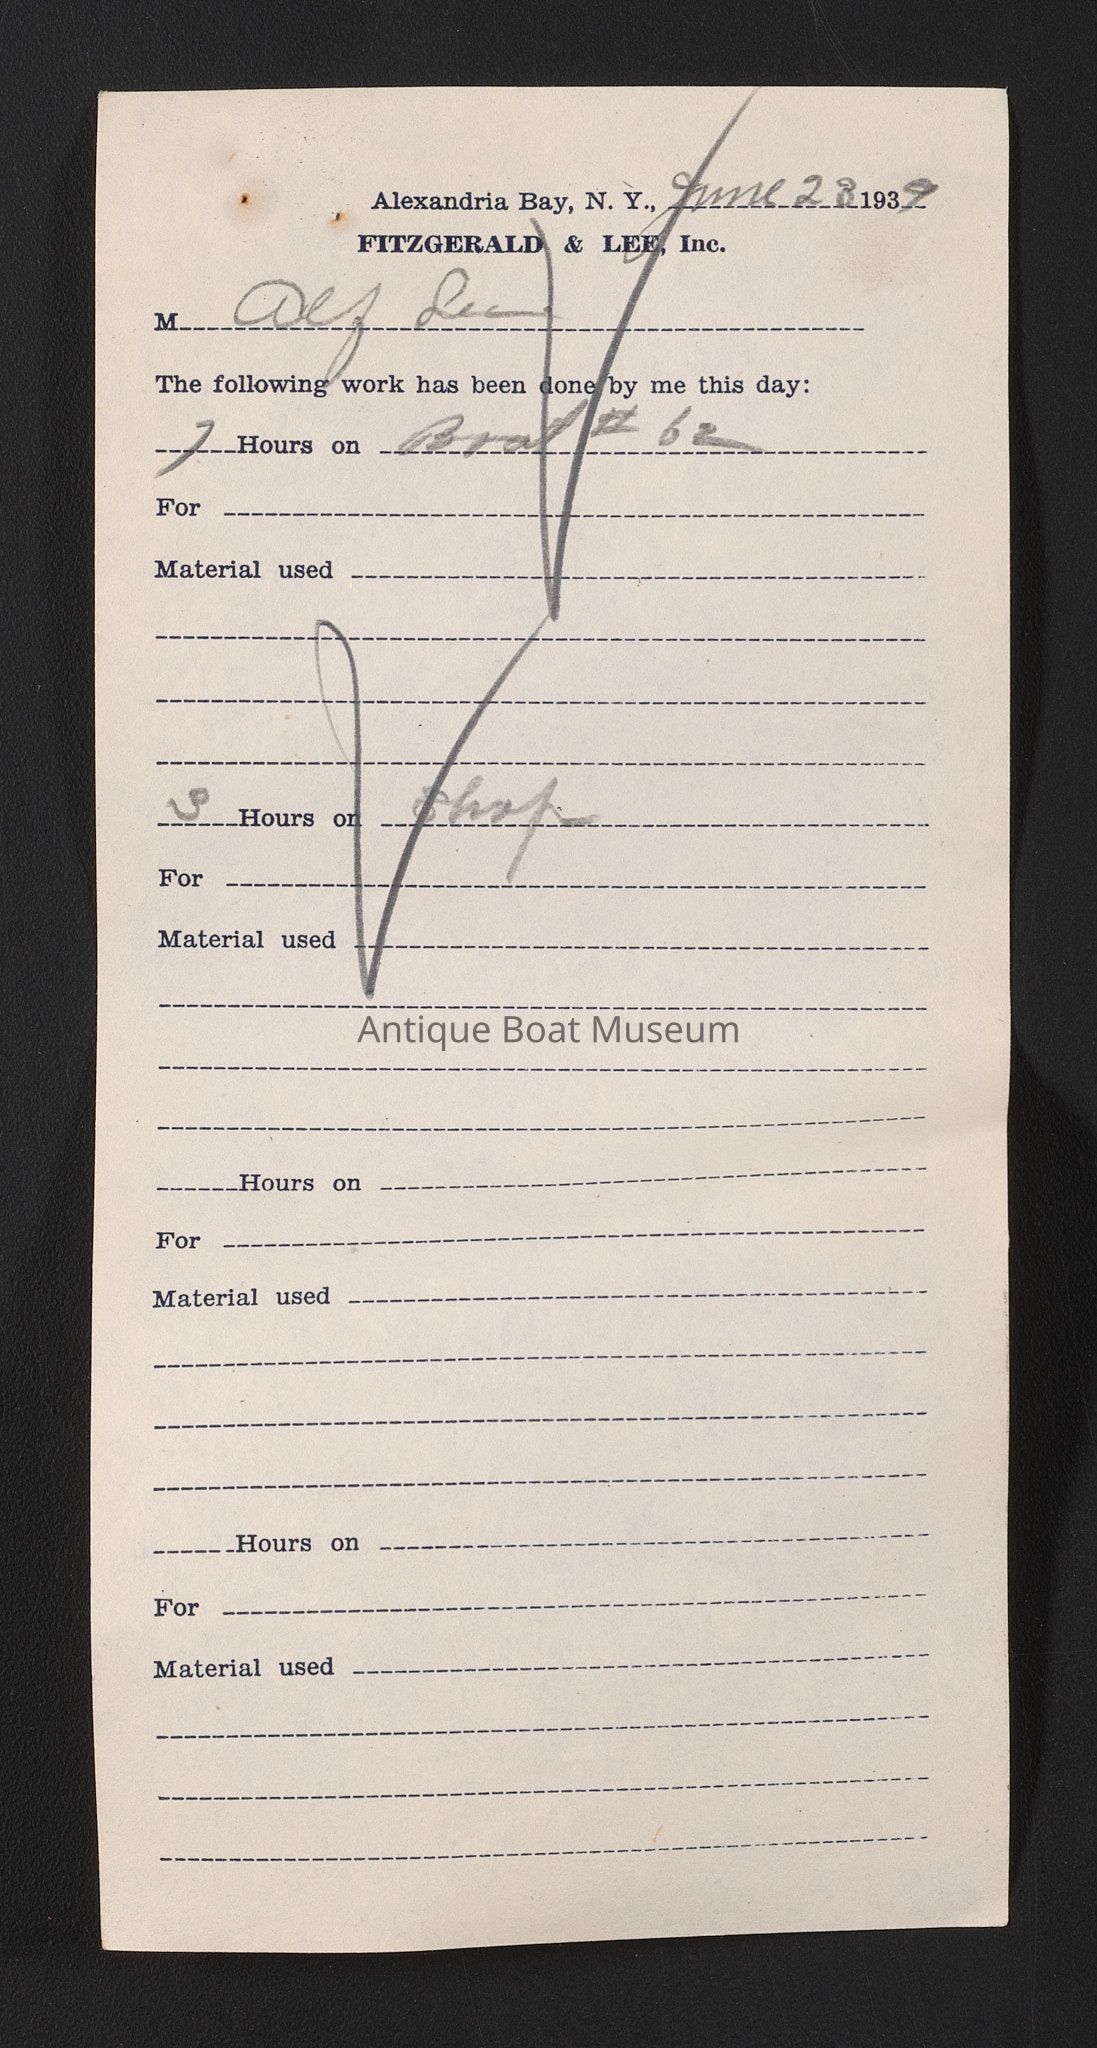 Alexandria Bay, N. Y., June 28 1939
FITZGERALD & LEE, Inc.
M Alf Lee
The following work has been done by me this day:
7 Hours on Boat # 62
For
Material used
3 Hours on Shop
For
Material used
Antique Boat Museum
Hours on
For
Material used
Hours on
For
Material used